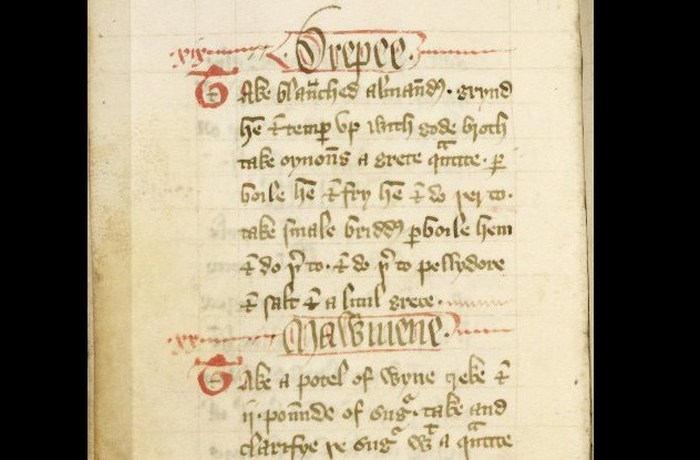 .xix. Drepee.
Take blaūched almaūdꝭ. grynd
hē ⁊ temꝑ vp with gode broth
take oynoūs a grete qᵃntite. ꝑ
boile hē ⁊ fry hē ⁊ do þer to.
take smale briddꝭ ꝑboile hem
⁊ do þʳ to. ⁊ do þʳ to pellydore
⁊ salt ⁊ a lītil grece.
.xx. Mawmene.
Take a potel of wyne greke ⁊
ii. poūnde of sugʳ. take and
clarifye þe sugʳ wᵗ a qᵃntite